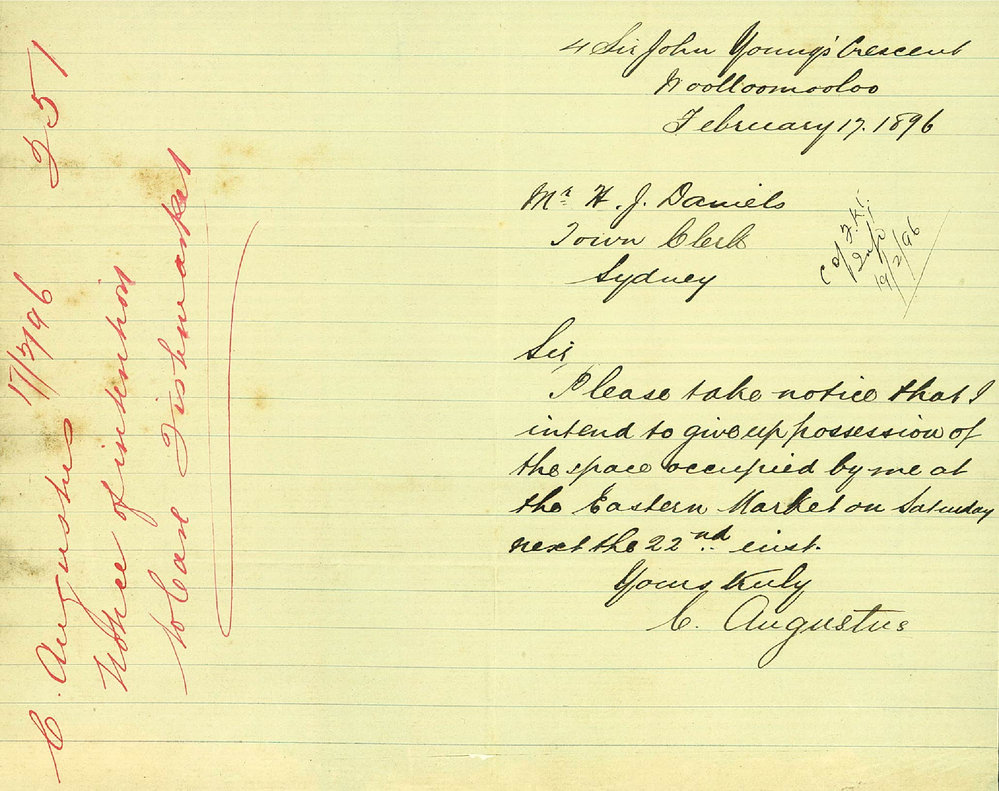 4 Sir John Young's Crescent
Woolloomooloo
February 17. 1896
Mr H. J. Daniels
Town Clerk
Sydney
19/2/96
Sir,
Please take notice that I
intend to give up possession of
the space occupied by me at
the Eastern Market on Saturday
next the 22nd inst.
Yours truly
C. Augustus
251
17/2/96
C. Augustus
Notice of intention
to leave Fishmarket